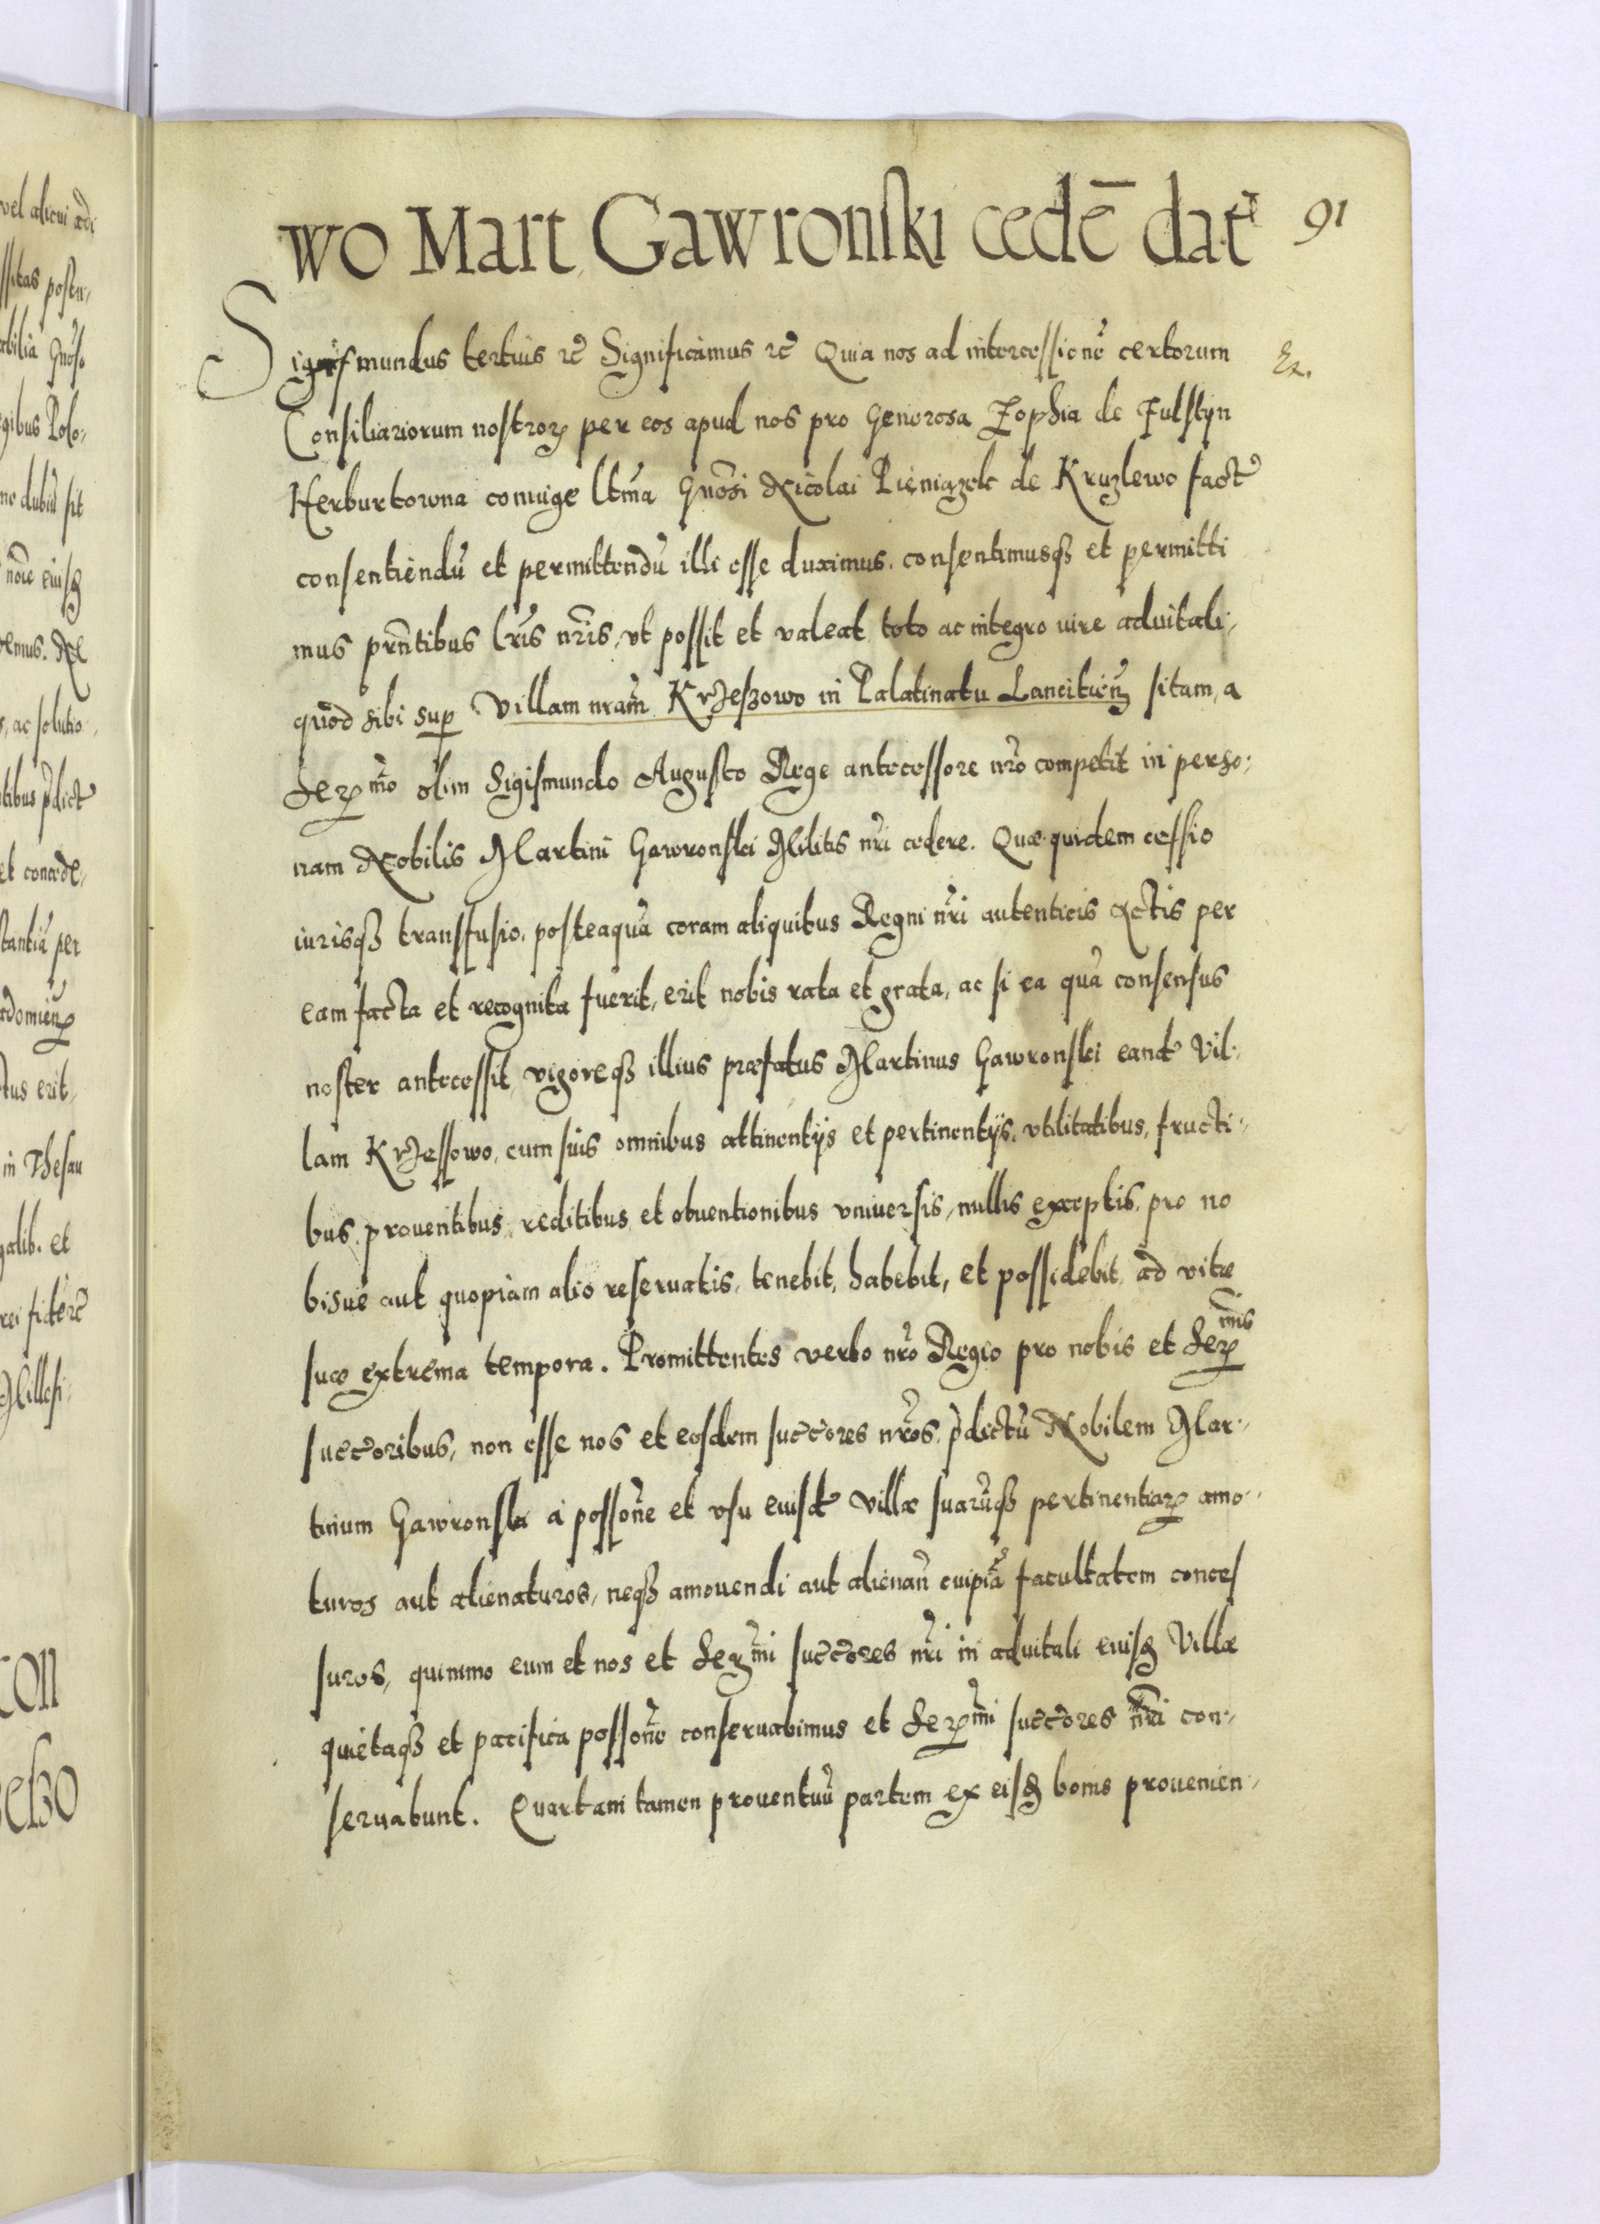 wo Mart Gawronski cedē dat
91
Sigismundus tertius rc̄ Significamus rc̄ Quia nos ad intercessionē certorum
Ex.
Consiliariorum nostroꝝ per eos apud nos pro Generosa Zophia de Fulstyn
Herburtowna coniuge ltm̄a Gnōsi Nicolai Pieniązek de Kruzlewo fact
consentiendū et permittendū illi esse duximus. consentimusqȝ et permitti
mus prn̄tibus lrīs nr̄is, vt possit et valeat toto ac integro iure aduitali,
quod sibi suꝑ Villam nram̄ Krzeszowo in Palatinatu Lancitien̄ sitam, a
Serꝰ mo olim Sigismundo Augusto Rege antecessore nr̄o competit in perso:
nam Nobilis Martini Gawronski Militis nr̄i cedere. Quæ quidem cessio
iurisqȝ transfusio, posteaquā coram aliquibus Regni nr̄i autenticis Actis per
eam facta et recognita fuerit, erit nobis rata et grata, ac si ea quā consensus
noster antecessit, vigoreqȝ illius præfatus Martinus Gawronski eand Vil-
lam Krzessowo, cum suis omnibus attinentijs et pertinentijs, vtilitatibus, fructi-
bus, prouentibus, reditibus et obuentionibus vniuersis, nullis exceptis, pro no
bisue aut quopiam alio reseruatis, tenebit, habebit, et possidebit, ad vitæ
suæ extrema tempora. Promittentes verbo nr̄o Regio pro nobis et Serꝰ mis
succōribus, non esse nos et eosdem succores nr̄os, p̄dictū Nobilem Mar-
tinum Gawronski a possōne et vsu eiusd villæ suarūqȝ pertinentiaꝝ amo-
turos aut alienaturos, neqȝ amouendi aut alienan̄ cuipiā facultatem conces
suros, quinimo eum et nos et Serꝰ mi succores nr̄i in aduitali eiusd Villæ
quietaqȝ et pacifica possōne conseruabimus et Serꝰ mi succores nr̄i con-
seruabunt. Quartam tamen prouentuū partem ex eisd bonis prouenien-